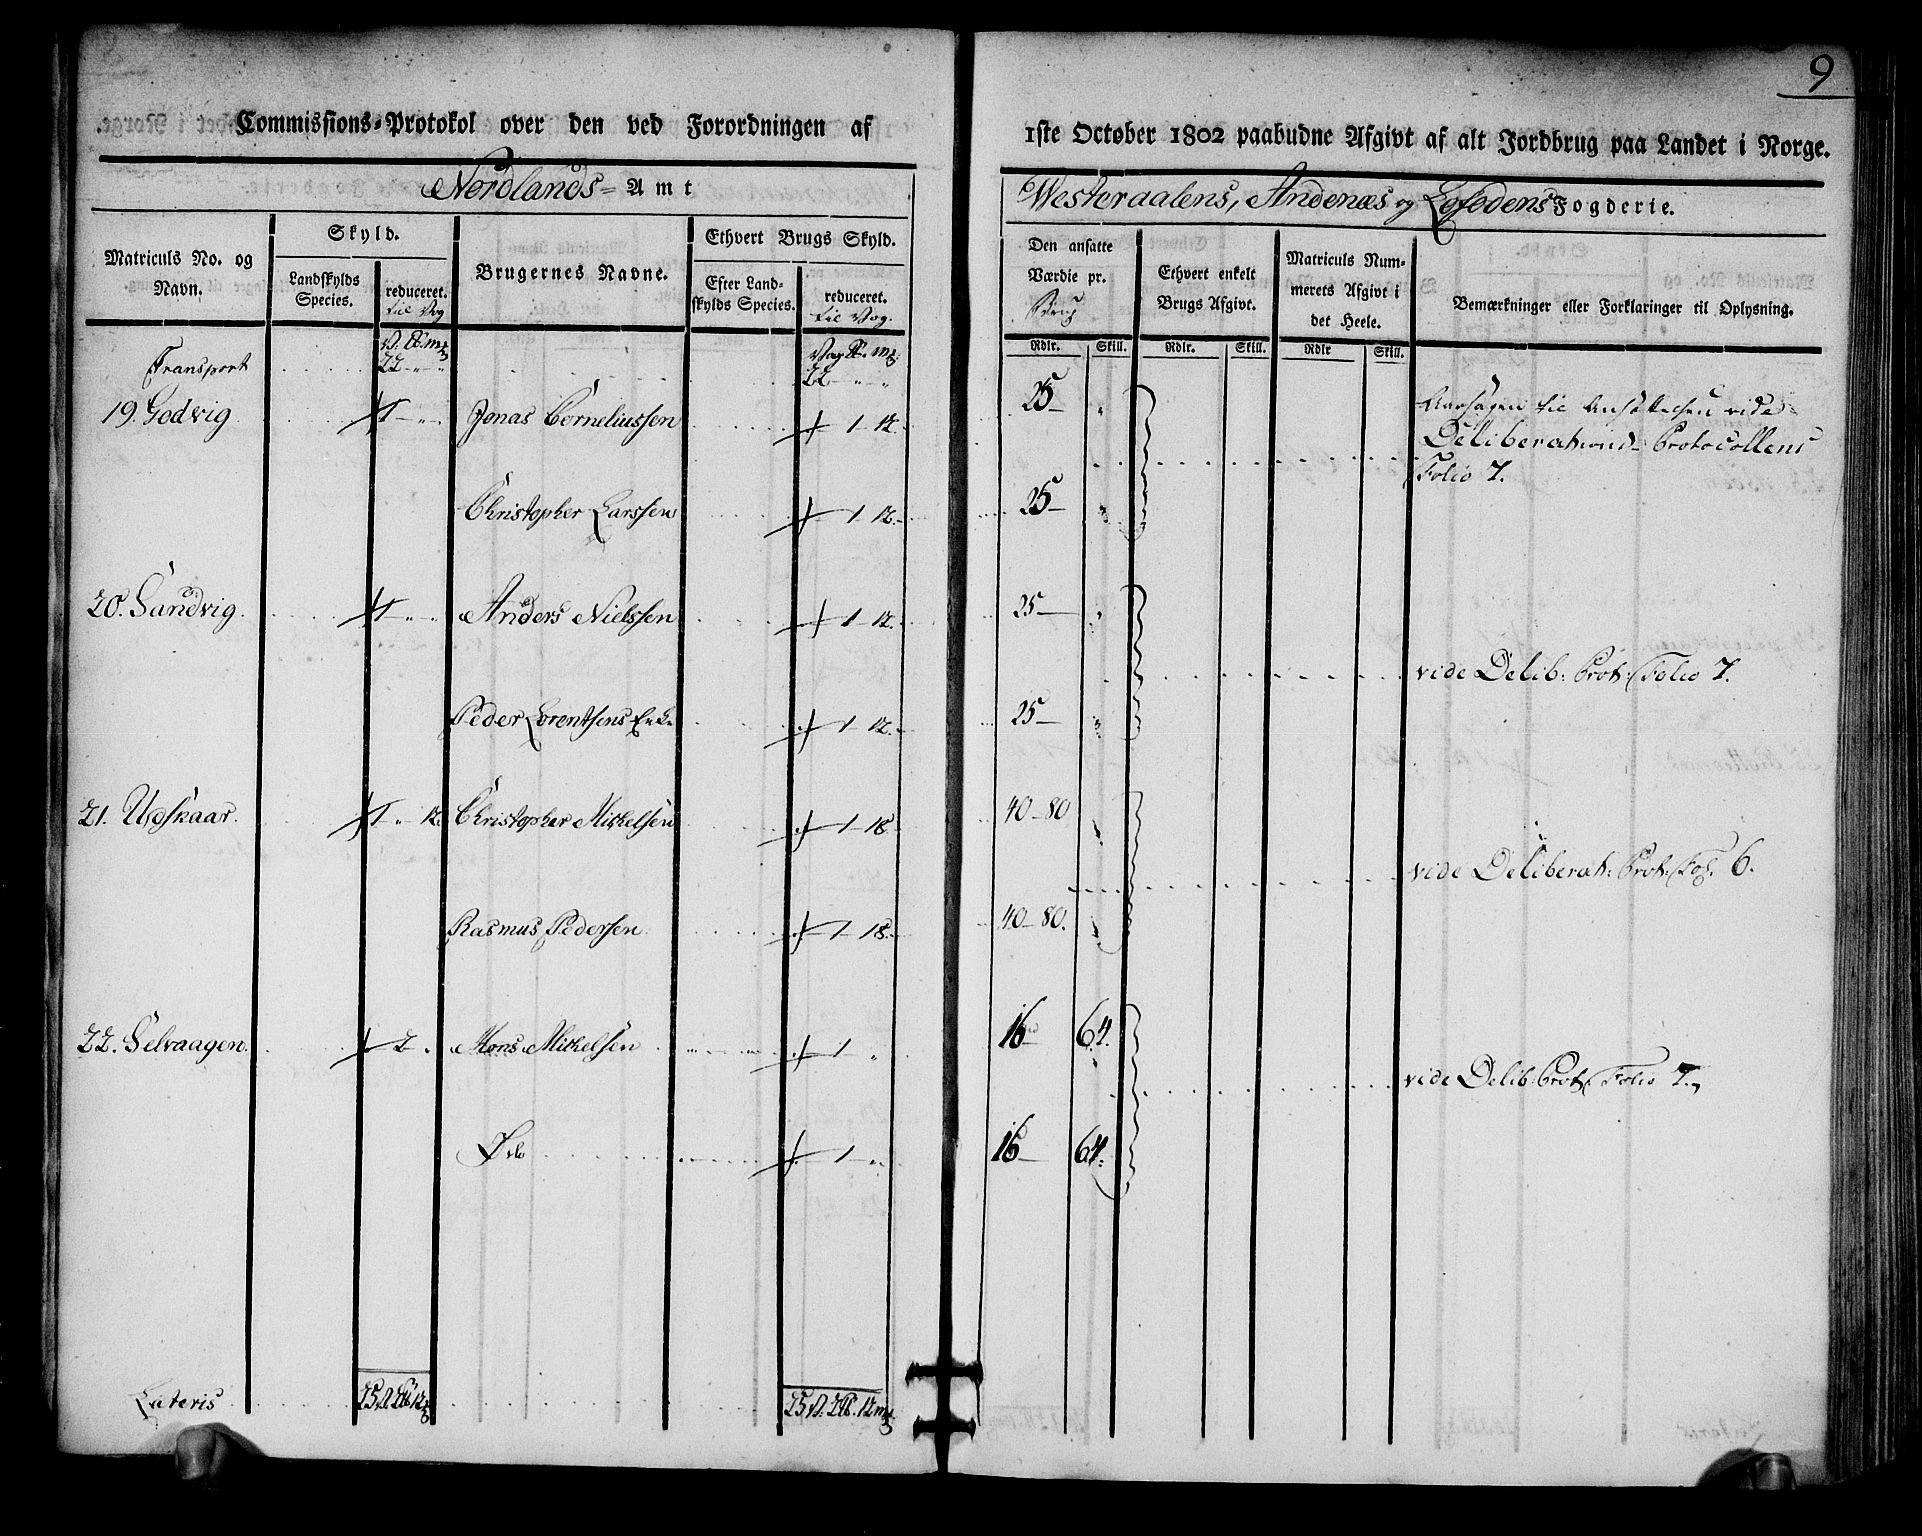 9
Commissions-Protokol over den ved Forordningen af 1ste October 1802 paabudne Afgivt af alt Jordbrug paa Landet i Norge.
Nordlands Amt
Westeraalens, Andenæs og Lofodens Fogderie.
Matriculs No. og Navn.
Skyld.
Landskylds Species.
reduceret. til Vog
Brugernes Navne.
Ethvert Brugs Skyld.
Efter Landskylds Species.
reduceret. til Vog.
Den ansatte Værdie pr. Brug
Ethvert enkelt Brugs Afgivt.
Matriculs Nummerets Afgivt i det Heele.
Bemærkninger eller Forklaringer til Oplysning.
Rdlr. Skill. Rdlr. Skill. Rdlr Skill.
Transport 22 - " - " 22 - " - "
19. Godvig 1 - " - " Jonas Corneliussen 1 - 12. 25 - "
Aarsagen til Ansættelsen vide
Deliberations Protocollens
Folio 7.
Christopher Larssen 1 - 12. 25 - "
20. Sandvig 1 " " Anders Nielssen 1 - 12. 25 - "
vide Delib: Prot: Folio 7.
Peder Lorentsens Enke 1 - 12. 25 - "
21. Udskaar 1 " 12. Christopher Mikelsen 1 - 18. 40 - 80
vide Deliberat: Prot: Fol. 6.
Rasmus Pedersen 1 - 18. 40 - 80.
22. Selvaagen 2 " Mons Mikelsen 1 " 16 - 64.
vide Delib: Prot: Folio 7.
1 " 16 - 64.
Lateris 25 V. 2 ℔. 12 25 V. 2 ℔. 12 m